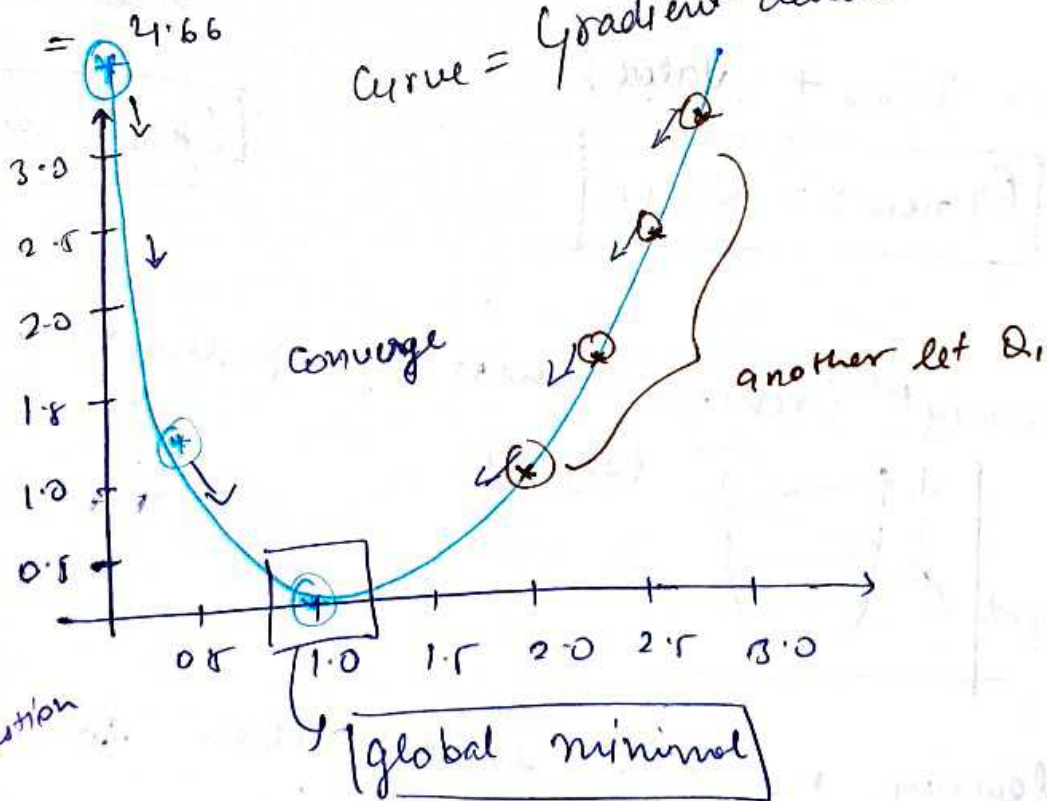 = 4.66
Curve = Gradient
3.0
2.5
2.0
Converge
another let θ₁
1.5
1.0
0.5
0.5 1.0 1.5 2.0 2.5 3.0
global minimal